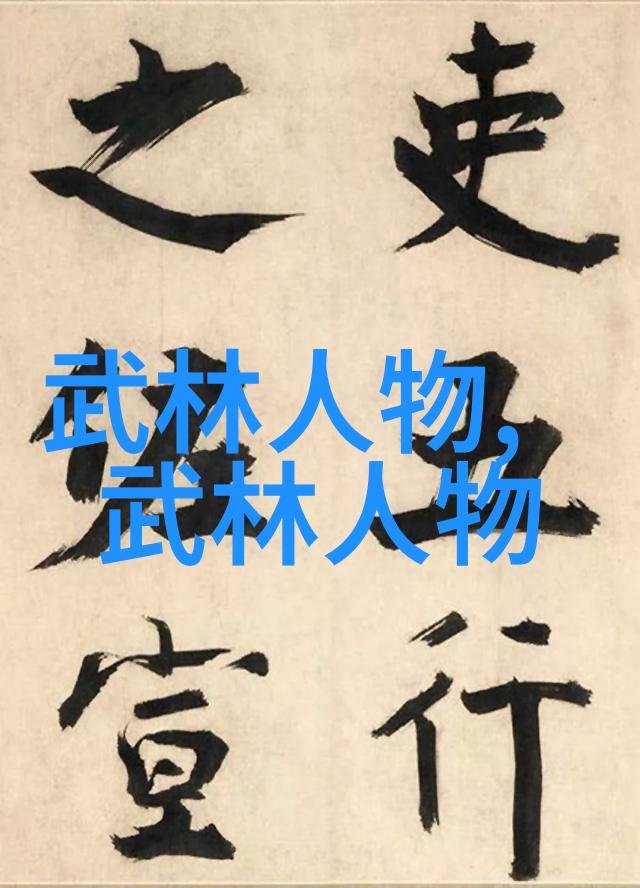 武林人物,
武林人物
吏行
之宣